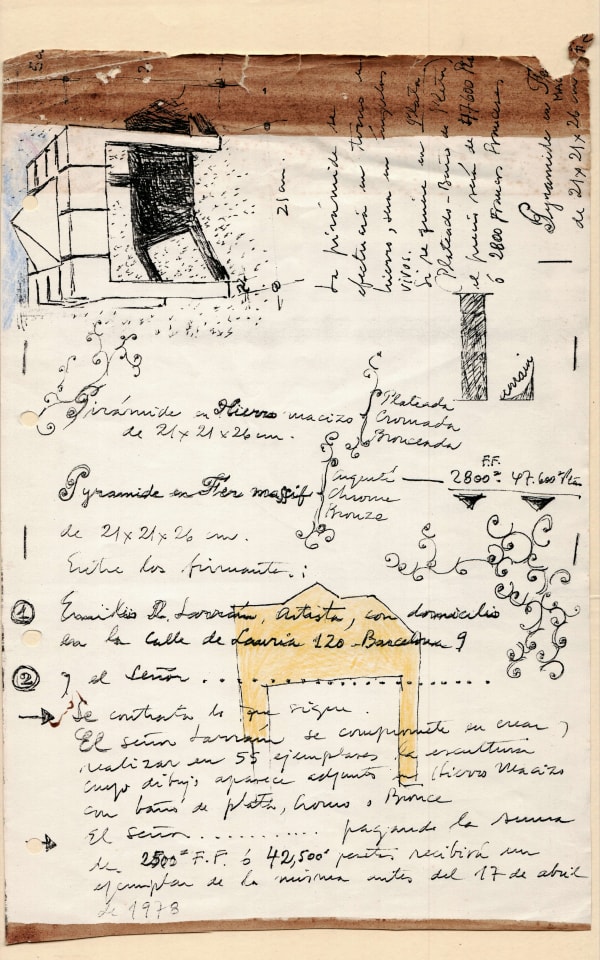 5a
21 cm.
la pirámide se
efectuará en torno a
hierro, sea en ángulos
vivos.
Si se quiere en Plata
(Plateado-Baño de Plata)
el precio será de 47.600 Pts
ó 2800 Francos Franceses
Pyramide en
de 21 x 21 x 26 cm
Pirámide en Hierro macizo
de 21 x 21 x 26 cm.
Plateada
Cromada
Bronceada
Pyramide en Fer massif
Argenté
Chrome
Bronze
F.F.
2800= 47.600= Pts
de 21 x 21 x 26 cm.
Entre los firmantes:
1 Emilio D. Larraín, Artista, con domicilio
en la calle de Lauria 120 - Barcelona 9
2 y el Señor ..........................
Se contrata lo que sigue.
El señor Larrain se compromete en crear y
realizar en 55 ejemplares la escultura
cuyo dibujo aparece adjunto en Hierro Macizo
con baños de plata, Cromo o Bronce
El Señor ........... pagando la suma
de 2500= F.F. ó 42,500= pesetas recibirá un
ejemplar de la misma antes del 17 de abril
de 1978